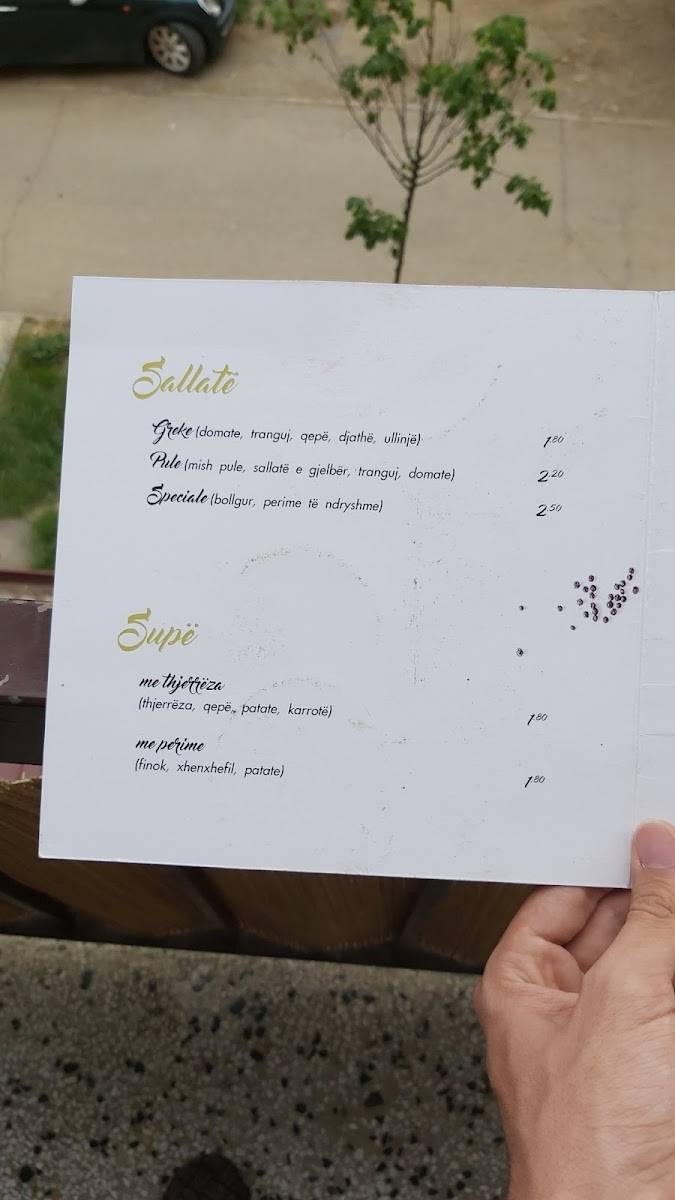 Sallatë
Greke (domate, tranguj, qepë, djathë, ullinjë) 1.80
Pule (mish pule, sallatë e gjelbër, tranguj, domate) 2.20
Speciale (bollgur, perime të ndryshme) 2.50
Supë
me thjerrëza
(thjerrëza, qepë, patate, karrotë) 1.80
me perime
(finok, xhenxhefil, patate) 1.80